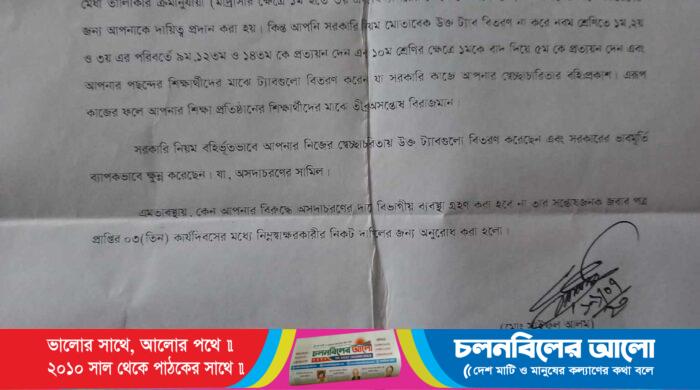 মেধা তালিকার ক্রমানুযায়ী (মাদ্রাসার ক্ষেত্রে ১ম হতে ৩য়
জন্য আপনাকে দায়িত্ব প্রদান করা হয়। কিন্তু আপনি সরকারি নিয়ম মোতাবেক উক্ত ট্যাব বিতরণ না করে নবম শ্রেণিতে ১ম,২য়
ও ৩য় এর পরিবর্তে ৯ম,১২তম ও ১৪তম কে প্রত্যয়ন দেন এবং ১০ম শ্রেণির ক্ষেত্রে ১মকে বাদ দিয়ে ৫ম কে প্রত্যয়ন দেন এবং
আপনার পছন্দের শিক্ষার্থীদের মাঝে ট্যাবগুলো বিতরণ করেন যা সরকারি কাজে আপনার স্বেচ্ছাচারিতার বহিঃপ্রকাশ। এরূপ
কাজের ফলে আপনার শিক্ষা প্রতিষ্ঠানের শিক্ষার্থীদের মাঝে তীব্র অসন্তোষ বিরাজমান।
সরকারি নিয়ম বহির্ভূতভাবে আপনার নিজের স্বেচ্ছাচারিতায় উক্ত ট্যাবগুলো বিতরণ করেছেন এবং সরকারের ভাবমূর্তি
ব্যাপকভাবে ক্ষুন্ন করেছেন। যা, অসদাচরণের সামিল।
এমতাবস্থায়, কেন আপনার বিরুদ্ধে অসদাচরণের দায়ে বিভাগীয় ব্যবস্থা গ্রহণ করা হবে না তার সন্তোষজনক জবাব পত্র
প্রাপ্তির ০৩(তিন) কার্যদিবসের মধ্যে নিম্নস্বাক্ষরকারীর নিকট দাখিলের জন্য অনুরোধ করা হলো।
(মোঃ আলম)
ভালোর সাথে, আলোর পথে ॥
২০১০ সাল থেকে পাঠকের সাথে ॥
চলনবিলের আলো
দেশ মাটি ও মানুষের কল্যাণের কথা বলে